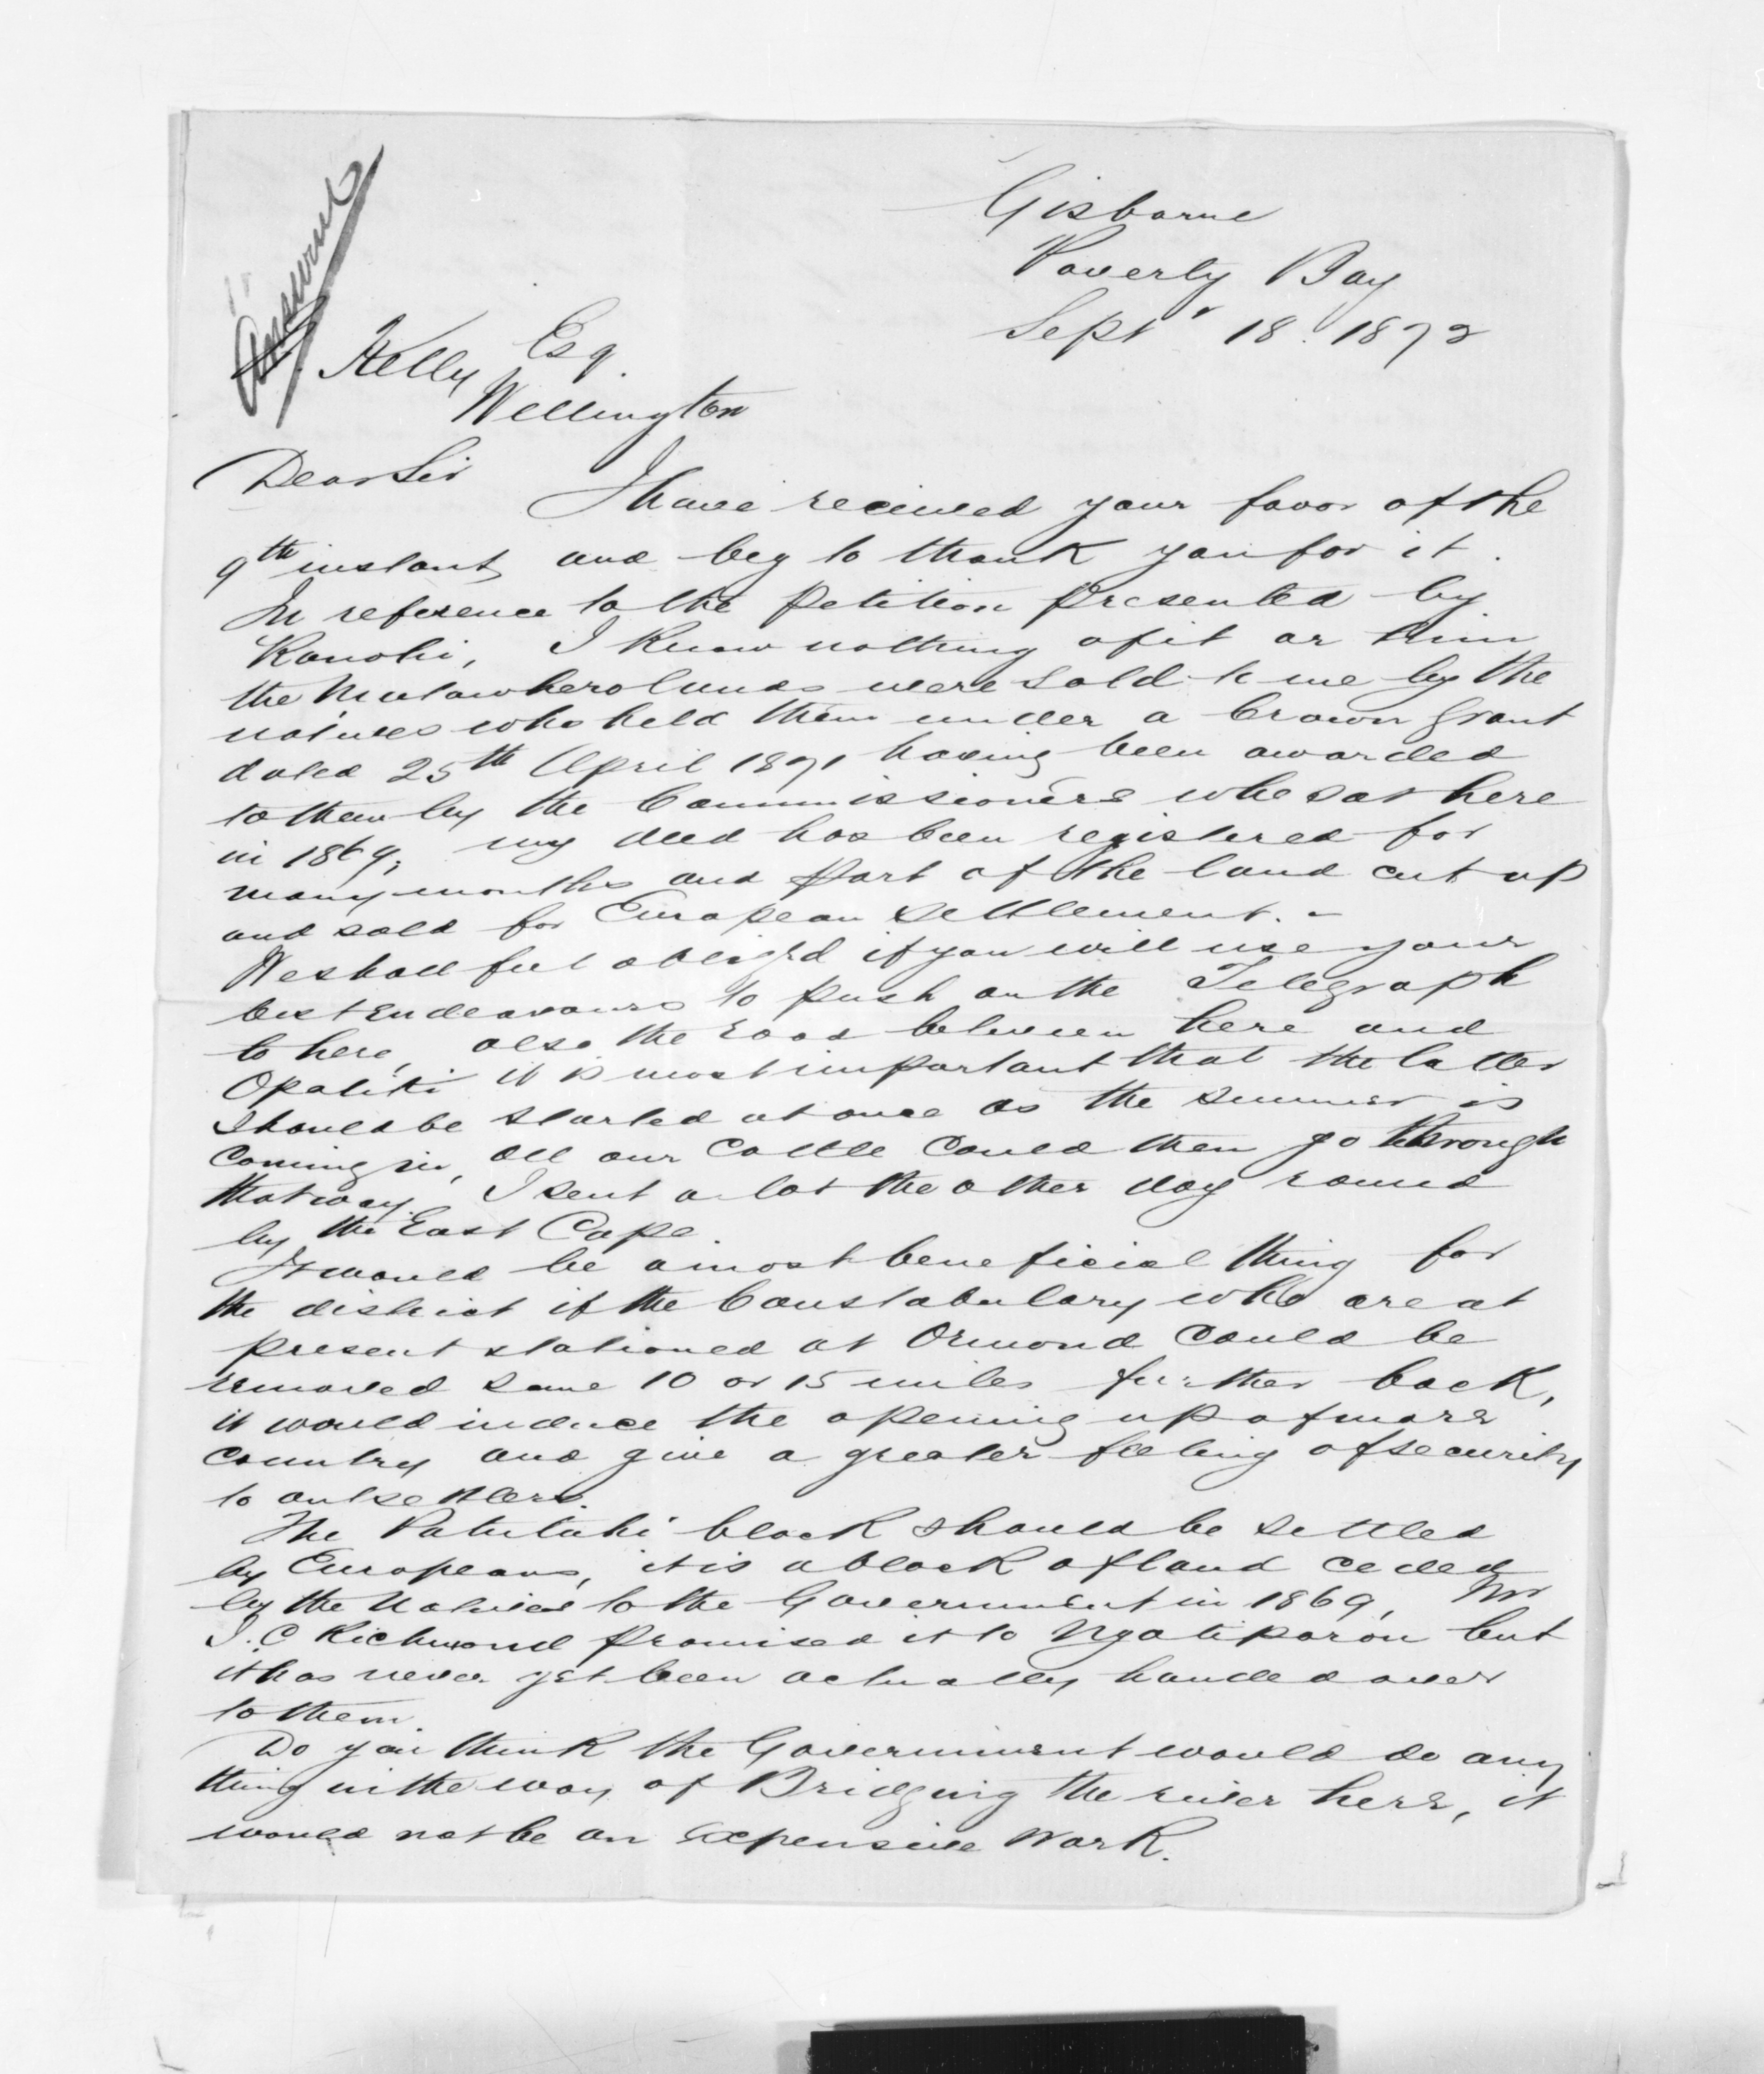 Gisborne
Poverty Bay
Septr 18. 1872
Answered
Kelly Esq.
Wellington
Dear Sir
I have received your favor of the
9th instant and beg to thank you for it.
In reference to the petition presented by
Kanohi, I know nothing of it or him
the Matawhero lands were sold to me by the
natives who held them under a Crown Grant
dated 25th April 1871 having been awarded
to them by the Commissioners who sat here
in 1869, my deed has been registered for
many months and part of the land cut up
and sold for European Settlement. -
We shall feel obliged if you will use your
best Endeavours to push on the Telegraph
to here, also the road between here and
Opotiki it is most important that the latter
should be started at once as the summer is
Coming in, all our Cattle Could then go through
that way. I sent a lot the other day round
by the East Cape.
It would be a most beneficial thing for
the district if the Constabulary who are at
present stationed at Ormond Could be
removed some 10 or 15 miles further back,
it would induce the opening up of more
country and give a greater feeling of security
to outsettlers.
The Patutahi block should be settled
by Europeans, it is a block of land ceded
by the Natives to the Government in 1869, Mr
J. C Richmond promised it to Ngatiporou but
it has never yet been actually handed over
to them.
Do you think the Government would do any
thing in the way of Bridging the river here, it
would not be an Expensive Work.